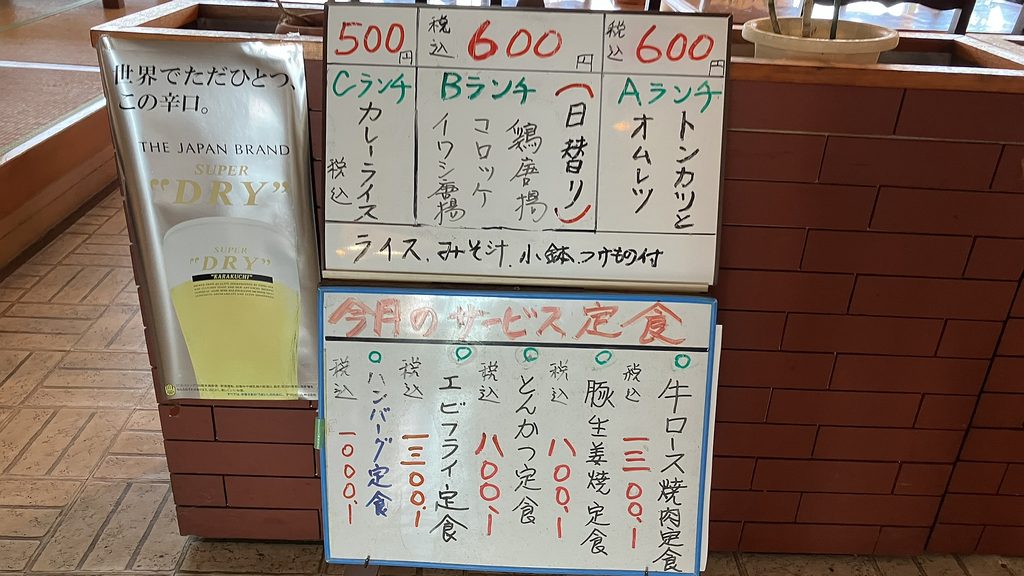 世界でただひとつ、
この辛口。
THE JAPAN BRAND
SUPER
"DRY"
SUPER
"DRY"
"KARAKUCHI"
税込 600円
Aランチ
トンカツと
オムレツ
税込 600円
Bランチ
(日替り)
鶏唐揚
コロッケ
イワシ唐揚
500円
Cランチ
カレーライス
税込
ライス、みそ汁、小鉢、つけもの付
今月のサービス定食
牛ロース焼肉定食
税込 一三〇〇、ー
豚生姜焼定食
税込 八〇〇、ー
とんかつ定食
税込 八〇〇、ー
エビフライ定食
税込 一三〇〇、ー
ハンバーグ定食
税込 一〇〇〇、ー